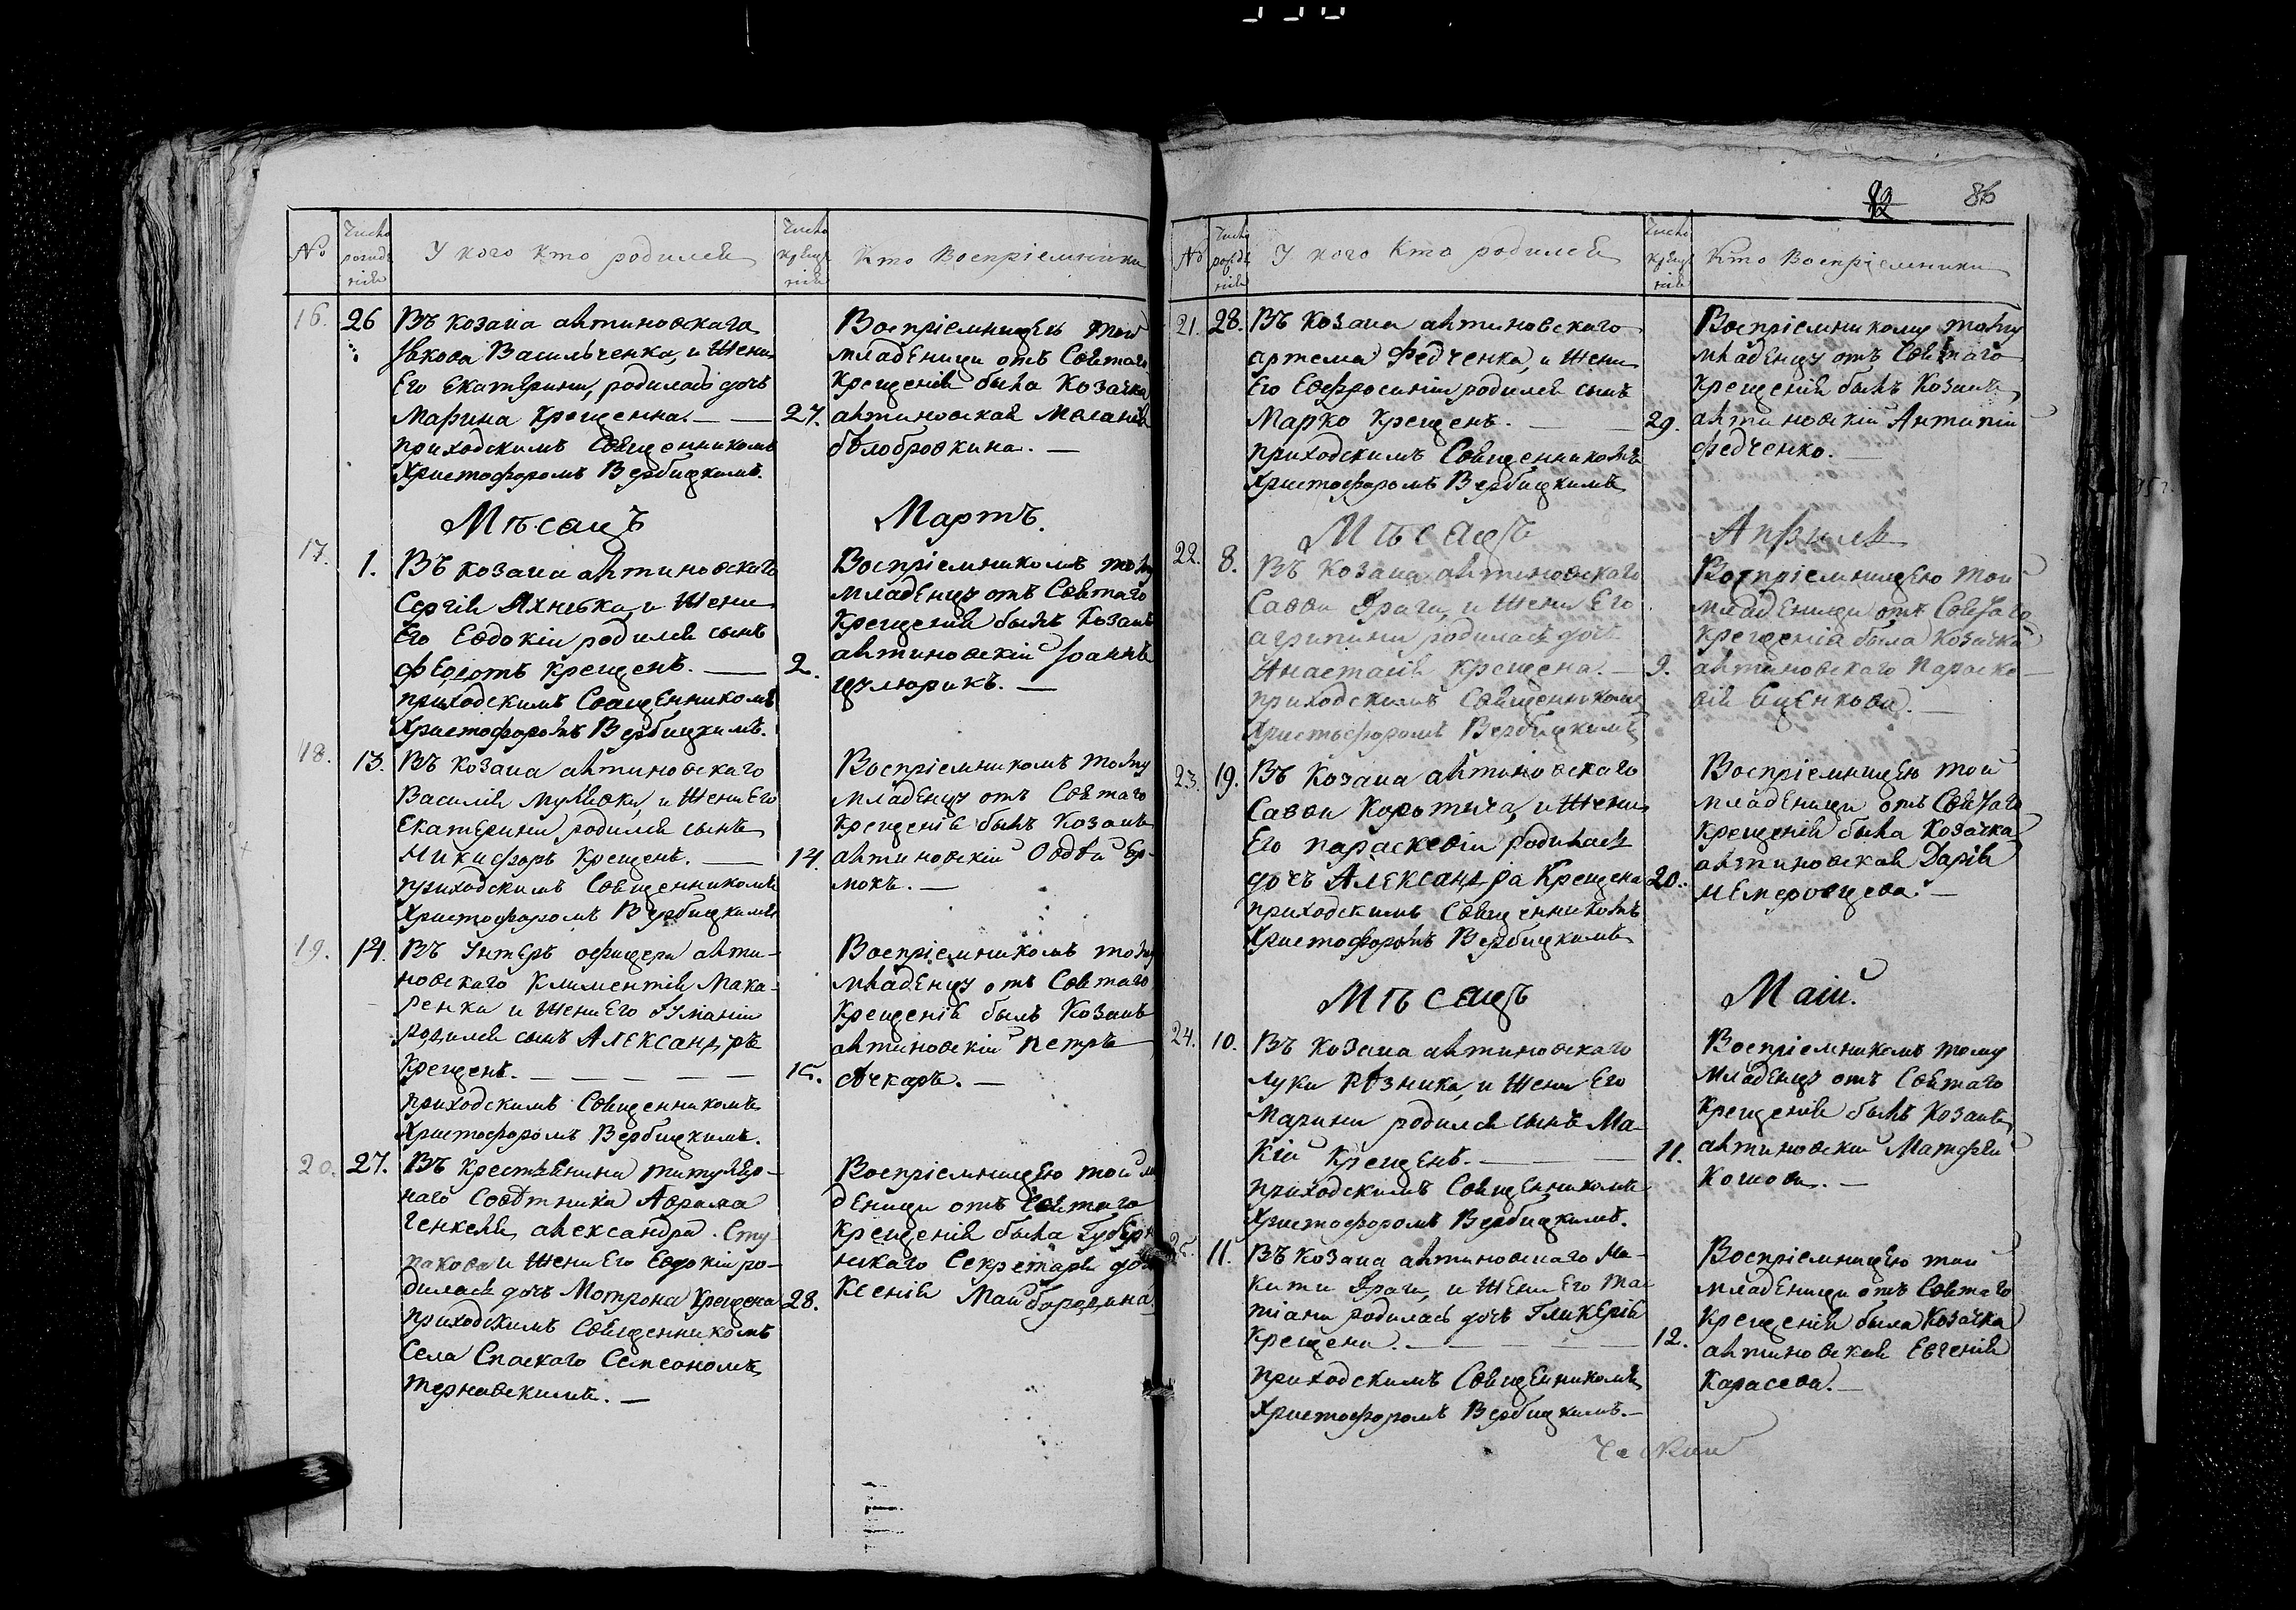 №
Число рожде нія
У кого кто родился
Число креще нія
Кто Воспріемники
16. 26 Въ козака алтиновскаго
Якова Васильченка, и жени
Его Екатерини, родилась дочь
Марина Крещенна. — —
приходскимъ Священникомъ
Христофоромъ Вербицкимъ.
27.
Воспріемницею той
младеници отъ Святаго
крещенія была Козачка
алтиновская Меланія
бѣлобровкина. —
Мѣсацъ Мартъ.
17. 1. Въ козака алтиновскаго
Сергія Яхнѣвка, и жени
Его Евдокіи родился сынъ
Федотъ крещенъ. —
приходскимъ Священникомъ
Христофоромъ Вербицкимъ.
2.
Воспріемникомъ тому
младенцу отъ Святаго
Крещенія былъ Козакъ
алтиновскій Іоаннъ
цулюрикъ. —
18. 13. Въ козака алтиновскаго
Василія мулявки, и жени Его
Екатерини, родился сынъ
Никифоръ Крещенъ. —
приходскимъ Священникомъ
Христофоромъ Вербицкимъ
14.
Воспріемникомъ тому
младенцу отъ Святаго
Крещенія былъ Козакъ
алтиновскій Овдѣй Ер-
мокъ. —
19. 14. Въ Унтеръ офицера алти-
новскаго Климентія Мака-
ренка и жени Его Іуліаніи
родился сынъ Александръ
Крещенъ. — — — — —
приходскимъ Священникомъ
Христофоромъ Вербицкимъ.
15.
Воспріемникомъ тому
младенцу отъ Святаго
Крещенія былъ Козакъ
алтиновскій петръ
Ачкаръ. —
20. 27. Въ крестьянина титуляр-
наго Совѣтника Аврама
Генкеля, александра Сту-
пакова и жени Его Евдокіи ро-
дилась дочь Мотрона Крещена
приходскимъ Священникомъ
Села Спаскаго Сампсономъ
терновскимъ. —
28.
Воспріемницею той мла
деници отъ Святаго
крещенія была Губерн
нскаго Секретаря дочь
Ксенія Майбородина.
82 86
№
Число рожде нія
У кого кто родился
Число креще нія
Кто Воспріемники
21. 28. Въ Козака алтиновскаго
артема Федченка, и жени
Его Евфросиніи родился сынъ
Марко Крещенъ. — —
приходскимъ Священникомъ
Христофоромъ Вербицкимъ
29.
Воспріемникомъ тому
младенцу отъ Святаго
крещенія былъ Козакъ
алтиновскій Антипій
федченко. —
Мѣсацъ Апрель
22. 8. Въ Козака алтиновскаго
Савви Драги, и жени Его
агрипини родилась дочь
Анастасія крещена. —
приходскимъ Священникомъ
Христофоромъ Вербицкимъ
9.
Воспріемницею той
младеници отъ Святаго
крещенія была козачка
алтиновскаго Параске-
вія Еценкова. —
23. 19. Въ Козака алтиновскаго
Савви Коротича, и жени
Его параскевіи родилась
дочь Александра Крещена
приходскимъ Священникомъ
Христофоромъ Вербицкимъ
20.
Воспріемницею той
младеници отъ Святаго
крещенія была Козачка
алтиновская Дарія
Немеровцева. —
Мѣсацъ Маій.
24. 10. Въ козака алтиновскаго
луки Рѣзника, и жени Его
Марини родился сынъ Ма-
кій Крещенъ. — —
приходскимъ Священникомъ
Христофоромъ Вербицкимъ.
11.
Воспріемникомъ тому
младенцу отъ Святаго
Крещенія былъ Козакъ
алтиновскій Матфѣй
Кошовъ. —
25. 11. Въ козака алтиновскаго Ми-
кити Драги, и жени Его Та-
тіани родилась дочь Гликерія
Крещена. — — — —
приходскимъ Священникомъ
Христофоромъ Вербицкимъ. —
12.
Воспріемницею той
младеници отъ Святаго
крещенія была Козачка
алтиновская Евгенія
Карасева. —